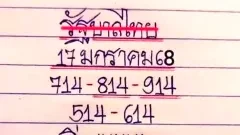 รัฐบาลไทย
17 มกราคม 68
714-814-914
514-614